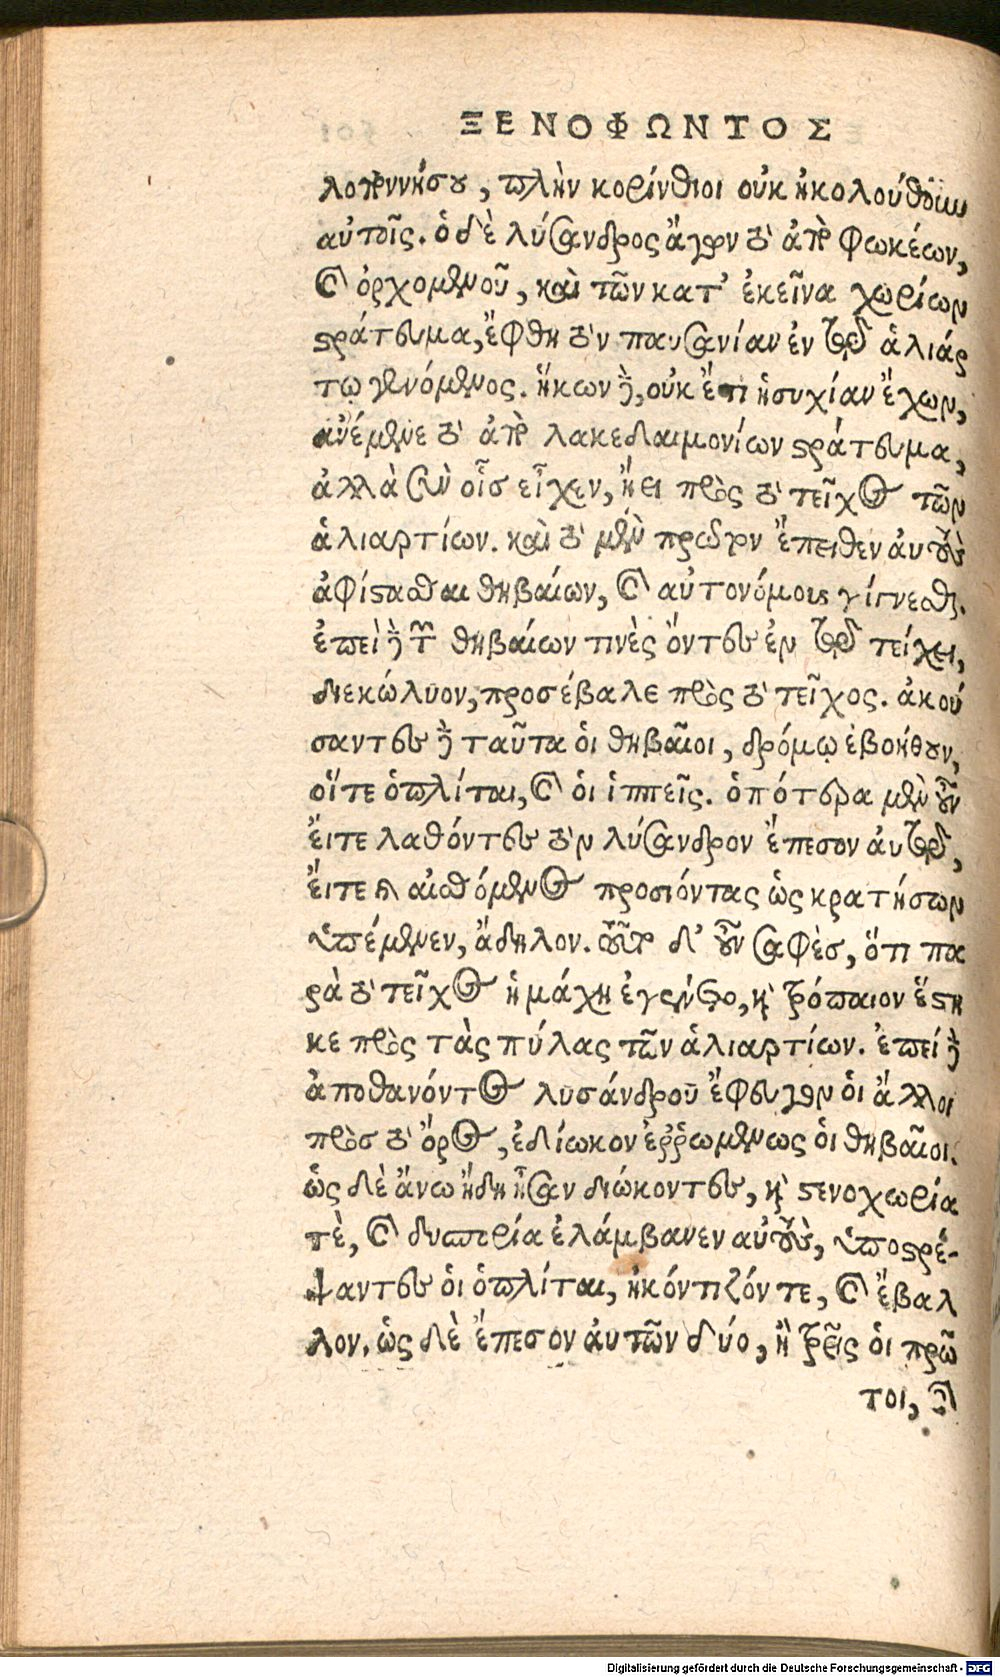 ΞΕΝΟΦΩΝΤΟΣ
λοποννήσου, πλὴν κορίνθιοι οὐκ ἠκολούθουν
αὐτοῖς. ὁ δὲ λύσανδρος ἄγων τὸ ἀπὸ φωκέων,
καὶ ὀρχομενοῦ, καὶ τῶν κατ' ἐκεῖνα χωρίων
στράτευμα, ἔφθη τὸν παυσανίαν ἐν τῷ ἁλιάρ
τῳ γενόμενος. ἥκων δὲ, οὐκ ἔτι ἡσυχίαν ἔχων,
ἀνέμενε τὸ ἀπὸ λακεδαιμονίων στράτευμα,
ἀλλὰ σὺν οἷσ εἶχεν, ᾔει πρὸς τὸ τεῖχος τῶν
ἁλιαρτίων. καὶ τὸ μὲν πρῶτον ἔπειθεν ἀυτοὺς
ἀφίστασθαι θηβαίων, καὶ αὐτονόμους γίγνεσθαι.
ἐπεὶ δὲ τῶν θηβαίων τινὲς ὄντες ἐν τῷ τείχει,
διεκώλυον, προσέβαλε πρὸς τὸ τεῖχος. ἀκού
σαντες δὲ ταῦτα ὁι θηβαῖοι, δρόμῳ ἐβοήθουν,
οἵτε ὁπλίται, καὶ ὁι ἱππεῖς. ὁπότερα μὲν οὖν
ἔιτε λαθόντες τὸν λύσανδρον ἔπεσον ἀυτῷ,
ἔιτε καὶ αἰσθόμενος προσιόντας ὡς κρατήσων
ὑπέμενεν, ἄδηλον. τοῦτο δ' οὖν σαφὲσ, ὅτι πα
ρὰ τὸ τεῖχος ἡ μάχη ἐγένετο, καὶ τρόπαιον ἕστη
κε πρὸς τὰς πύλας τῶν ἁλιαρτίων. ἐπεί δὲ
ἀποθανόντος λυσάνδρου ἔφευγον ὁι ἄλλοι
πρὸσ τὸ ὄρος, ἐδίωκον ἐῤῥωμένως ὁι θηβαῖοι.
ὡς δὲ ἄνω ἤδη ἦσαν διώκοντες, καὶ στενοχωρία
τὲ, καὶ δυσπορία ἐλάμβανεν αὐτοὺς, ὑποστρέ-
ψαντες ὁι ὁπλίται, ἠκόντιζόν τε, καὶ ἔβαλ
λον. ὡς δὲ ἔπεσον ἀυτῶν δύο, ἢ τρεῖς ὁι πρῶ
τοι, καὶ
Digitalisierung gefördert durch die Deutsche Forschungsgemeinschaft - DFG